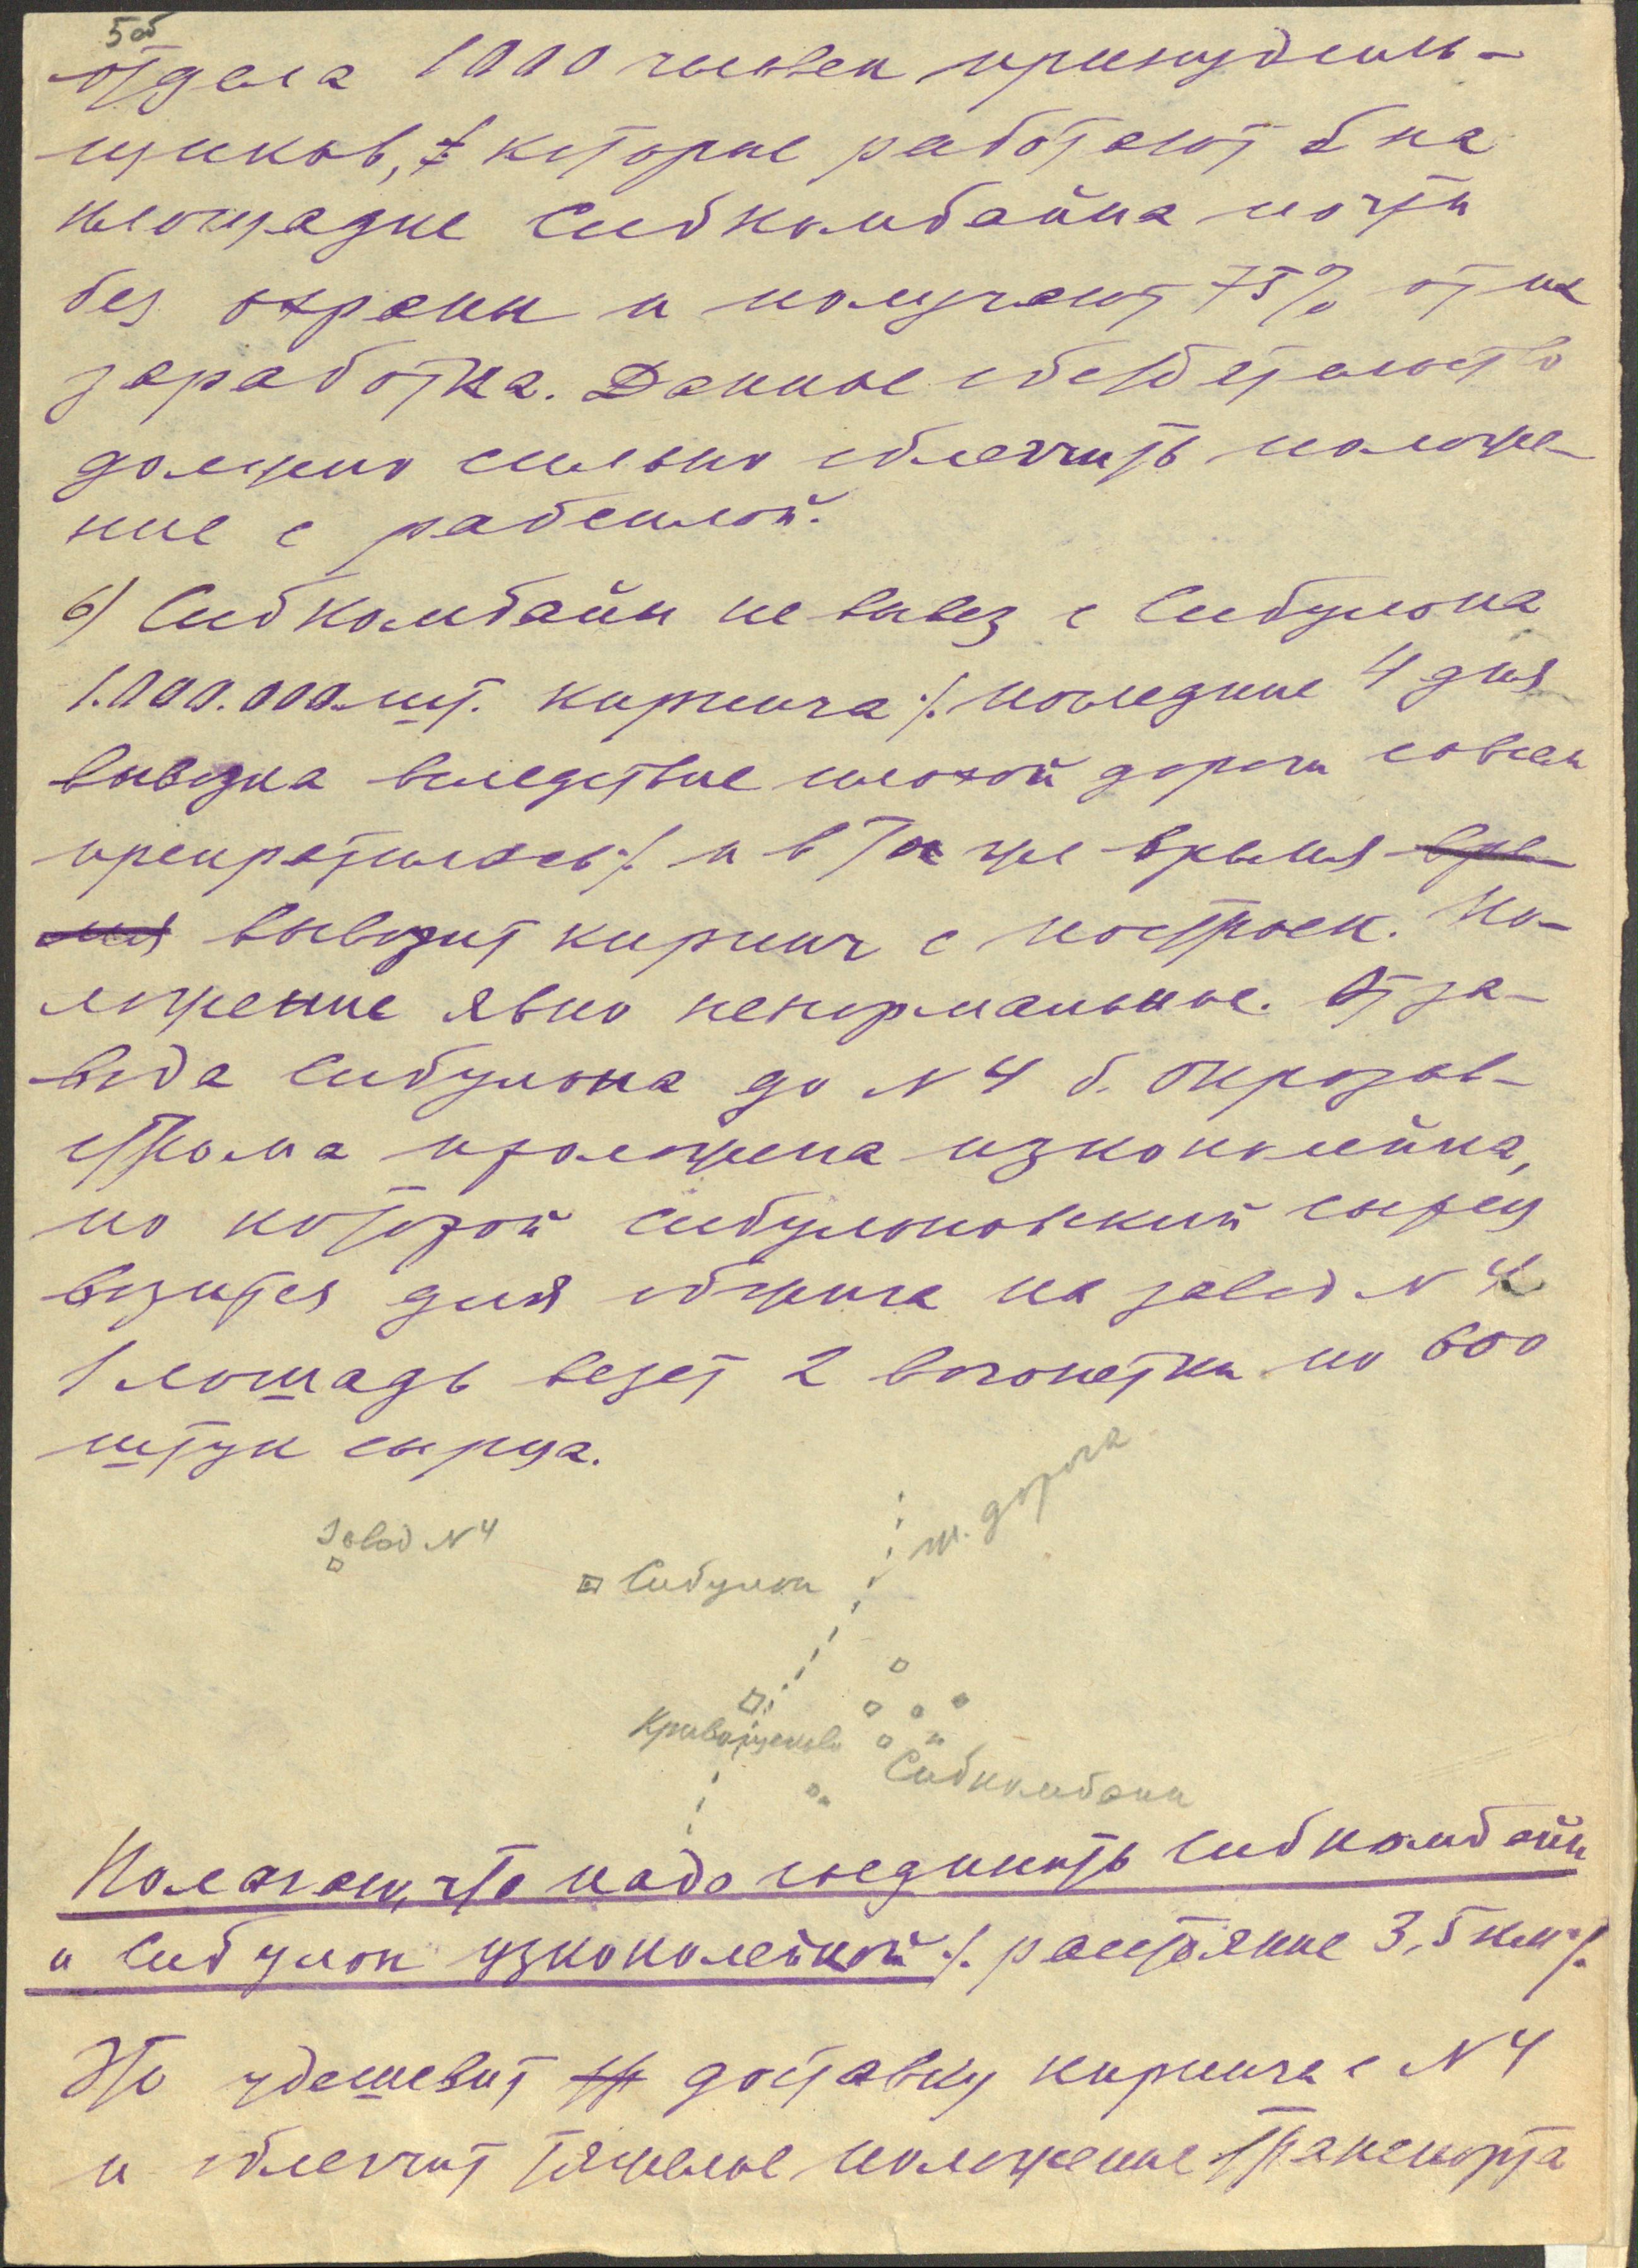 5об
отдела 1000 человек принудиль-
щиков, которые работают на
площадке Сибкомбайна почти
без охраны и получают 75% от их
заработка. Данное обстоятельство
должно сильно облегчить положе-
ние с рабсилой.
6) Сибкомбайн не вывез с Сибулона
1.000.000 шт. кирпича ·/. последние 4 дня
вывозка вследствие плохой дороги совсем
прекратилась ·/. и в то же время вре-
мя вывозит кирпич с построек. По-
ложение явно ненормальное. От за-
вода Сибулона до N 4 б. Окрздрав-
строма проложена узкоколейка,
по которой сибулоновский сырец
возится для обжига на завод N 4
1 лошадь везет 2 вагонетки по 600
штук сырца.
ж. дорога
Завод N 4
Сибулон
Кривощеково
Сибкомбайн
Полагаем, что надо соединить Сибкомбайн
и Сибулон узкоколейкой ·/. расстояние 3,5 км ·/.
Это удешевит доставку кирпича с N 4
и облегчит тяжелое положение транспорта